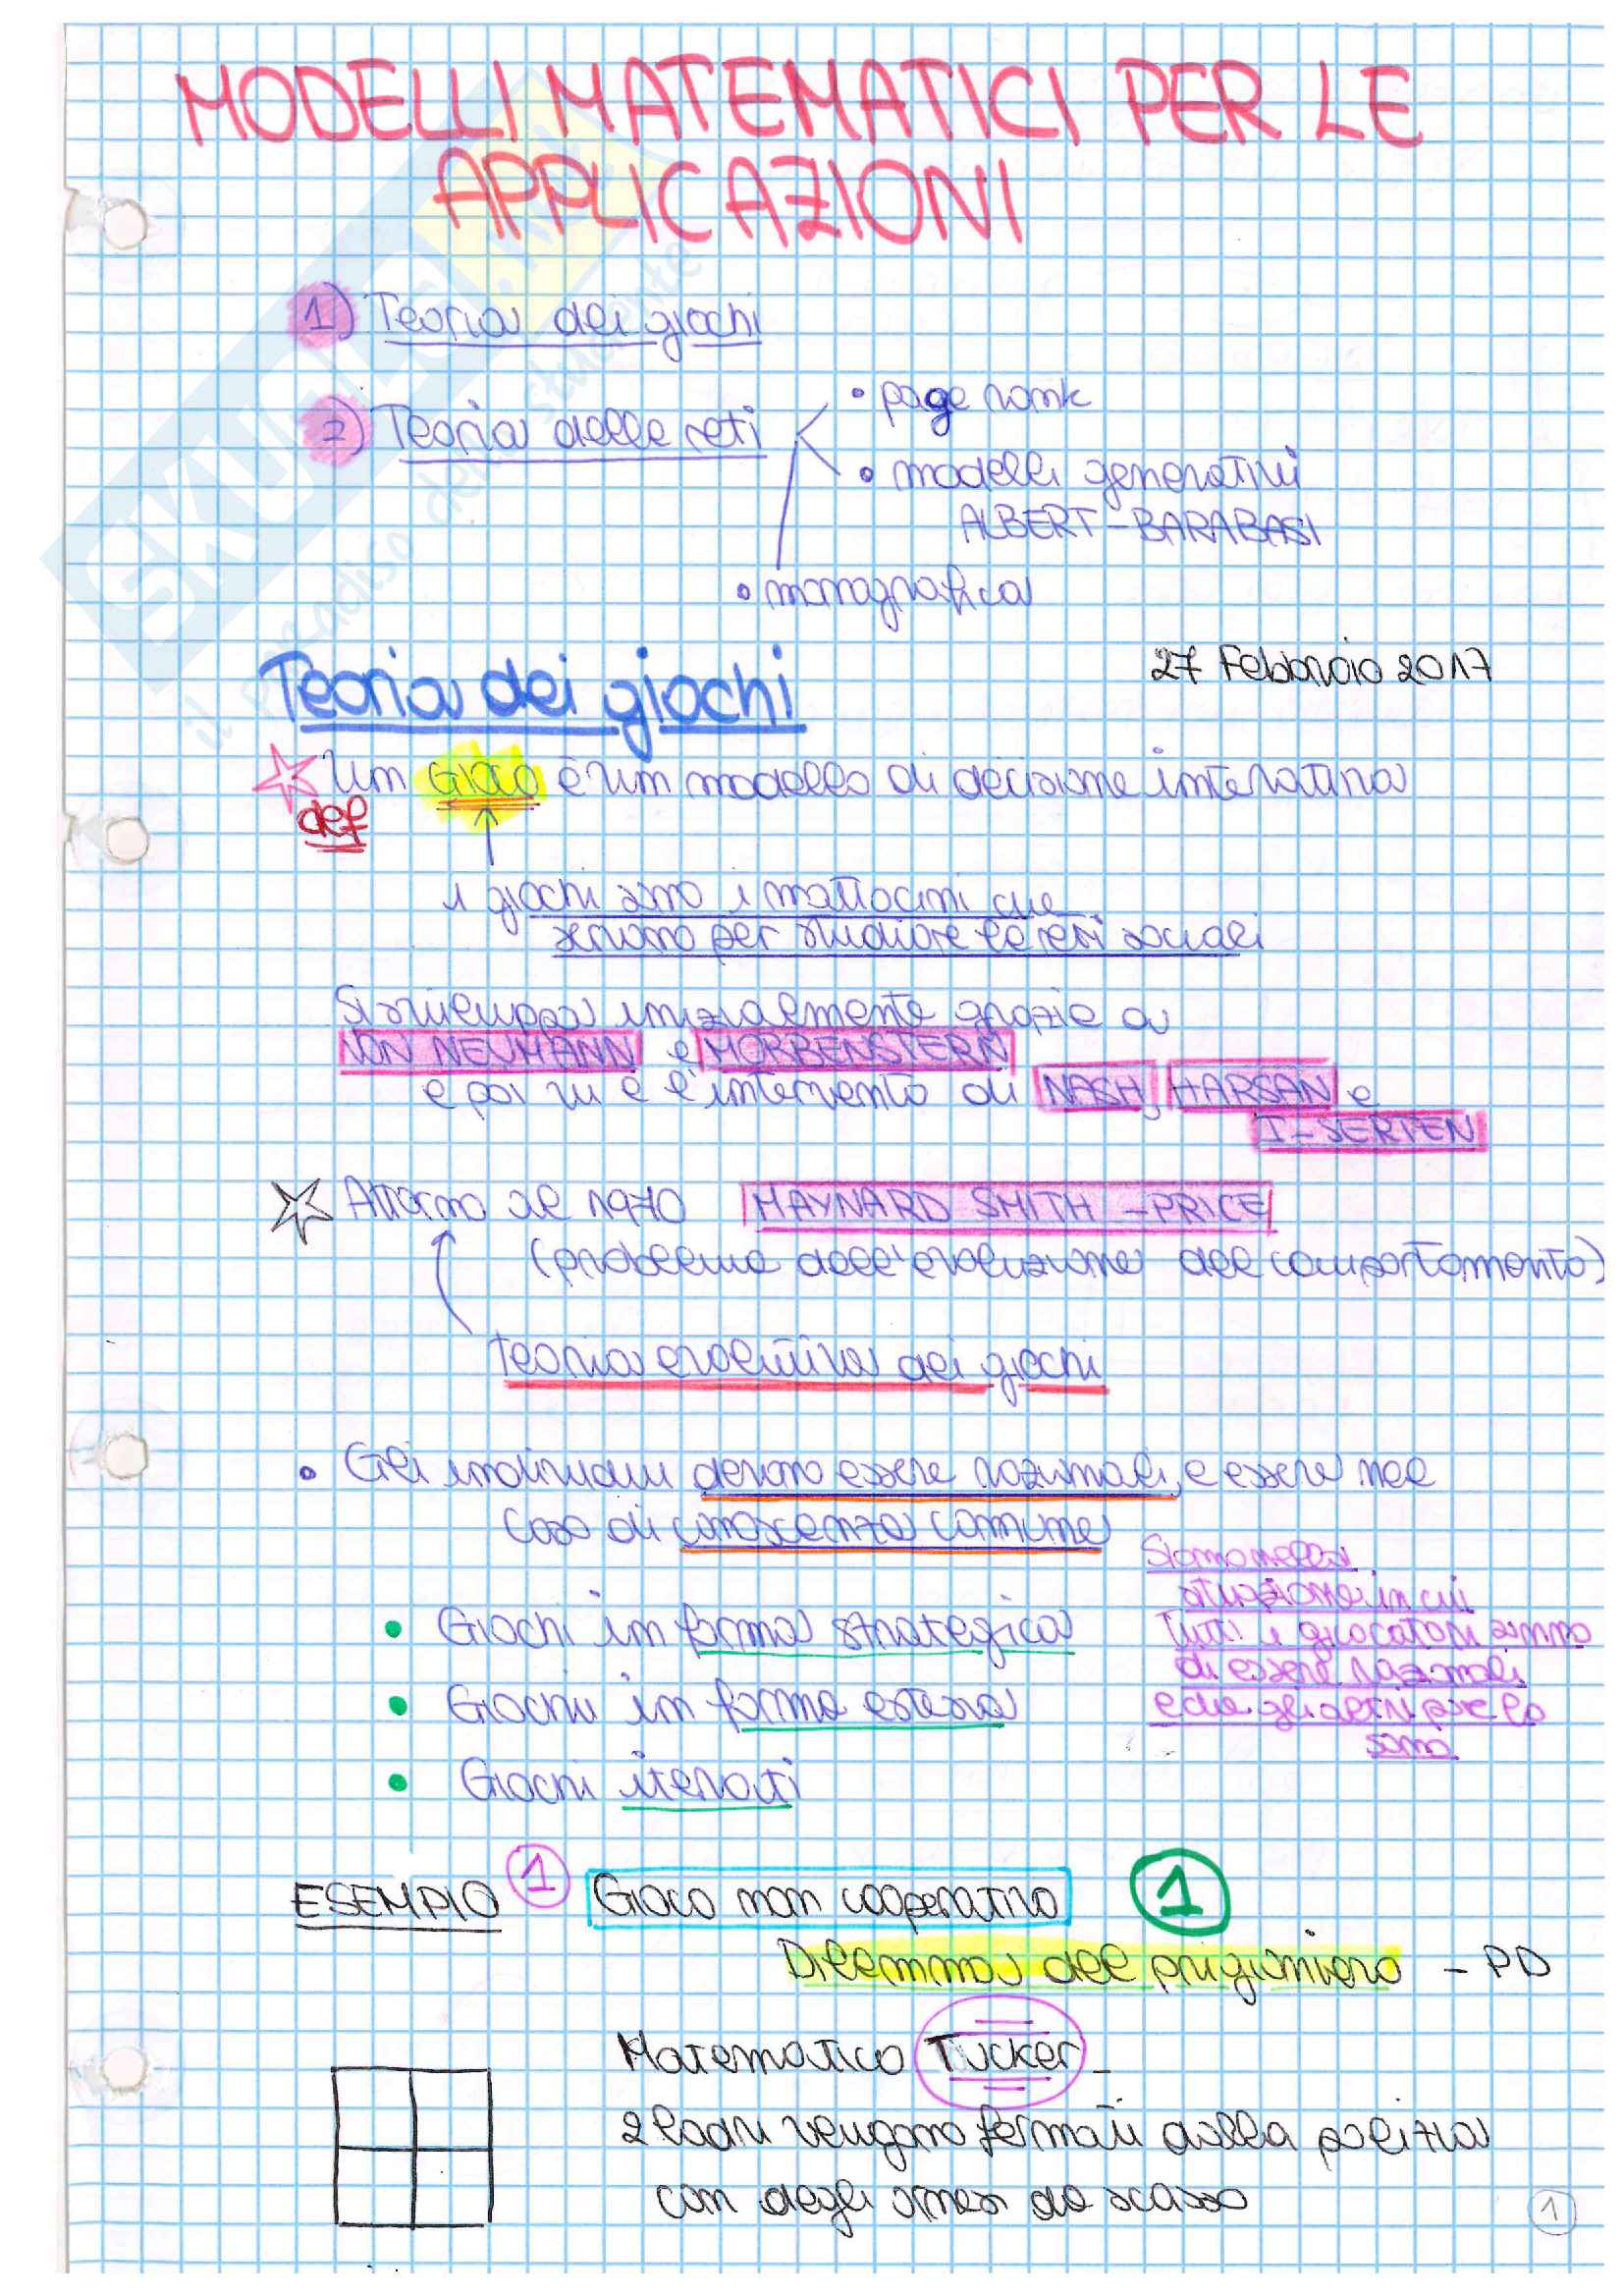 MODELLI MATEMATICI PER LE
APPLICAZIONI
1) Teoria dei giochi
2) Teoria delle reti
• page rank
• modelli generativi
ALBERT-BARABASI
• monografica
27 Febbraio 2017
Teoria dei giochi
Un GIOCO è un modello di decisione interattiva
def
i giochi sono i mattoncini che
servono per studiare le reti sociali
Si sviluppa inizialmente grazie a
VON NEUMANN e MORBENSTERN
e poi vi è l'intervento di NASH, HARSAN e
I-SERTEN
Attorno al 1970 MAYNARD SMITH - PRICE
(problema dell'evoluzione del comportamento)
Teoria evolutiva dei giochi
• Gli individui devono essere razionali, e essere nel
caso di conoscenza comune
Siamo nella
situazione in cui
tutti i giocatori sanno
di essere razionali
e che gli altri pure lo
sono
• Giochi in forma strategica
• Giochi in forma estesa
• Giochi iterati
ESEMPIO 1 Gioco non cooperativo 1
Dilemma del prigioniero - PD
Matematico Tucker -
2 ladri vengono fermati dalla polizia
con degli arnesi da scasso
1
SKUOLA.net
il paradiso dello studente